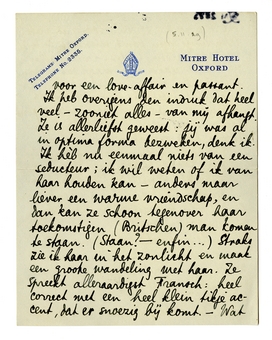 (5.11.29)
TELEGRAMS: MITRE OXFORD.
TELEPHONE No. 2335.
MITRE HOTEL
OXFORD
voor een love-affair en passant.
Ik heb overigens den indruk dat heel
veel - zooniet alles - van mij afhangt.
Ze is allerliefst geweest: jij was al
in optima forma bezweken, denk ik.
Ik heb nu eenmaal niets van een
seducteur; ik wil weten of ik van
haar houden kan - anders maar
liever een warme vriendschap, en
dan kan ze schoon tegenover haar
toekomstigen (Britschen) man komen
te staan. (Staan? - enfin...) Straks
zie ik haar in het zonlicht en maak
een groote wandeling met haar. Ze
spreekt alleraardigst Fransch: heel
correct met een heel klein tikje ac-
cent, dat er snoezig bij komt. - Wat